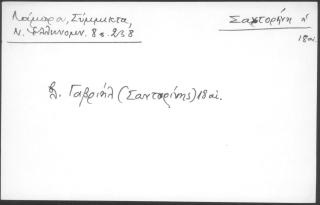 Λάμπρου, Σύμμικτα,
Ν. Ἑλληνομν. 8 σ. 238
Σαντορήνη ή
18 αι.
Γαβριήλ (Σαντορίνης) 18 αι.